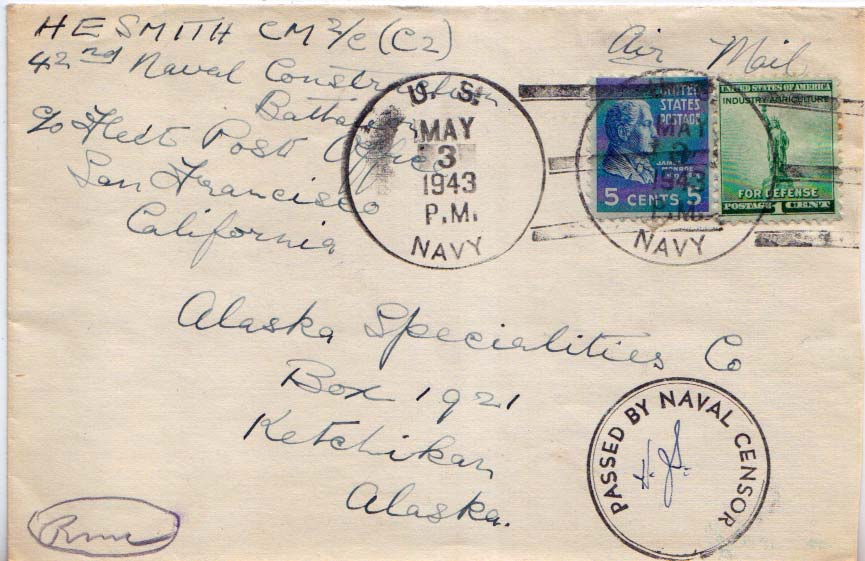 H E SMITH CM 2/C (C2)
42nd Naval Construction
Battalion
c/o Fleet Post Office
San Francisco
California
Air Mail
U. S.
MAY
3
1943
P.M.
NAVY
UNITED
STATES
POSTAGE
JAMES
MONROE
5 CENTS 5
MAY
3
1943
P.M.
NAVY
UNITED STATES OF AMERICA
INDUSTRY AGRICULTURE
FOR DEFENSE
POSTAGE 1 CENT
Alaska Specialities Co
Box 1921
Ketchikan
Alaska.
PASSED BY NAVAL CENSOR